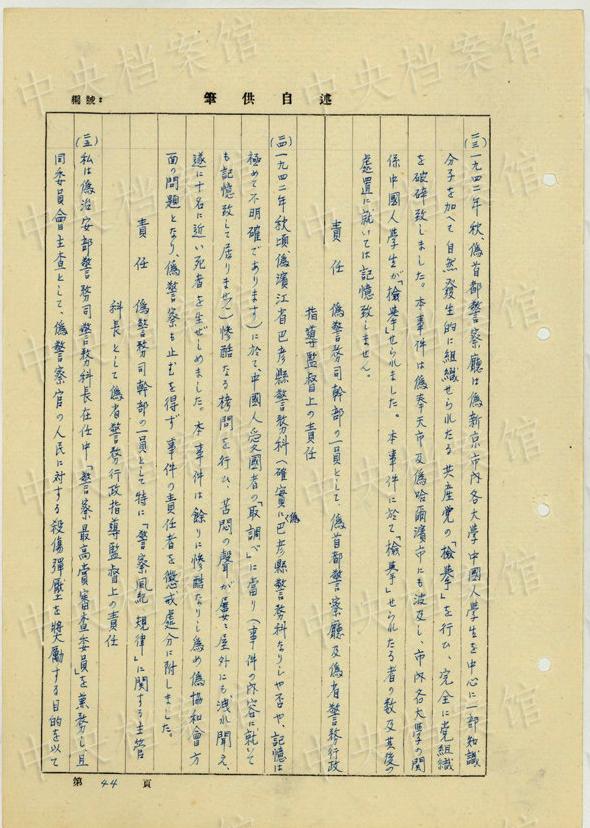 編號:
筆供自述
(三三)一九四二年秋、偽首都警察廳は偽新京市內各大學中國人學生を中心に一部知識
分子を加へて自然發生的に組織せられたる共産党の「檢擧」を行ひ、完全に党組織
を破碎致しました。本事件は偽奉天市及偽哈爾濱市にも波及し、市內各大學の関
係中國人學生が「檢擧」せられました。本事件に於て「檢擧」せられたる者の数及其後の
處置に就いては記憶致しません。
責任 偽警務司幹部の一員として偽首都警察廳及偽省警務行政
指導監督上の責任
(三四)一九四二年秋頃、偽濱江省巴彥縣警務科(確實に偽巴彥縣警務科なりしや否や、記憶は
極めて不明確であります)に於て中國人愛國者の「取調べ」に當り(事件の內容に就いて
も記憶致して居りません)慘酷なる拷問を行ひ、苦悶の聲が屢々屋外にも洩れ聞え、
遂に十名に近い死者を生ぜしめました。本事件は餘りに慘酷なりし為め偽協和會方
面の問題となり、偽警察も止むを得ず事件の責任者を懲戒處分に附しました。
責任 偽警務司幹部の一員として特に「警察風紀規律」に関する主管
科長として偽省警務行政指導監督上の責任
(三五)私は偽治安部警務司警務科長在任中「警察最高賞審查委員」を兼務し、且
同委員會主查として、偽警察官の人民に対する殺傷彈壓を奬勵する目的を以て
第 44 頁
中央档案馆